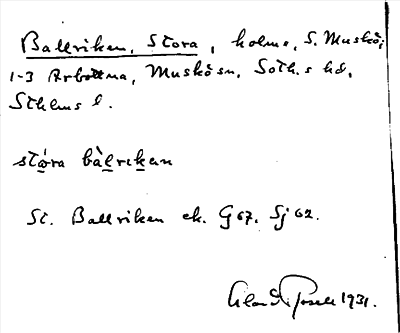 Ballriken, Stora, holme, S. Muskö;
1-3 Arbottna, Muskö sn, Soth.s hd,
Sthlms l.
stóra bàlrikan
St. Ballriken ek. G67. Sj 62.
1931.